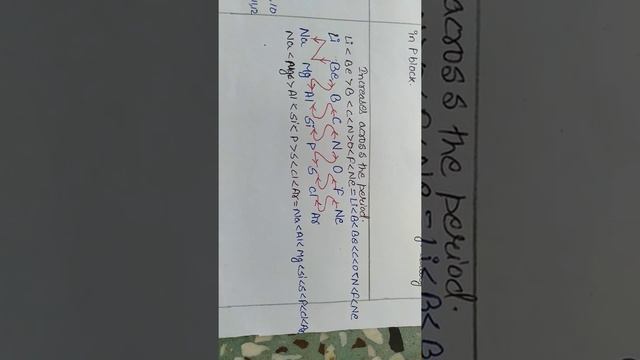 In P block.
Increases across the period.
Li < Be > B < C < N > O < F < Ne = Li < B < Be < C < O < N < F < Ne
Li Be > B < C < N > O < F < Ne
Na Mg > Al < Si < P > S < Cl < Ar
Na < Mg > Al < Si < P > S < Cl < Ar = Na < Al < Mg < Si < S < P < Cl < Ar
across the period.